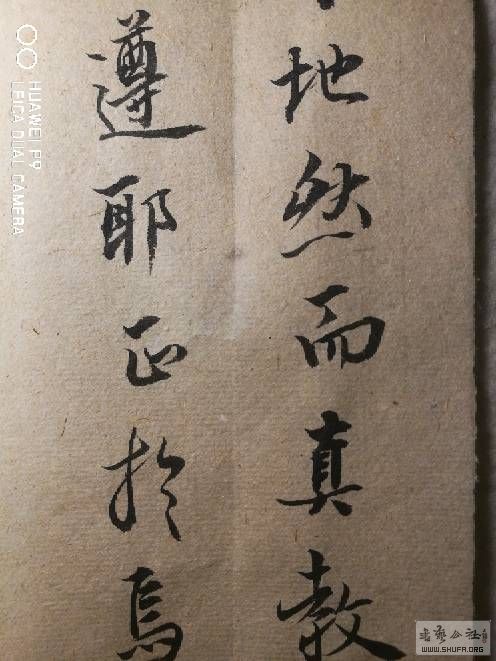 地然而真教
遵耶正於焉
HUAWEI P9
LEICA DUAL CAMERA
书艺公社
WWW.SHUFA.ORG